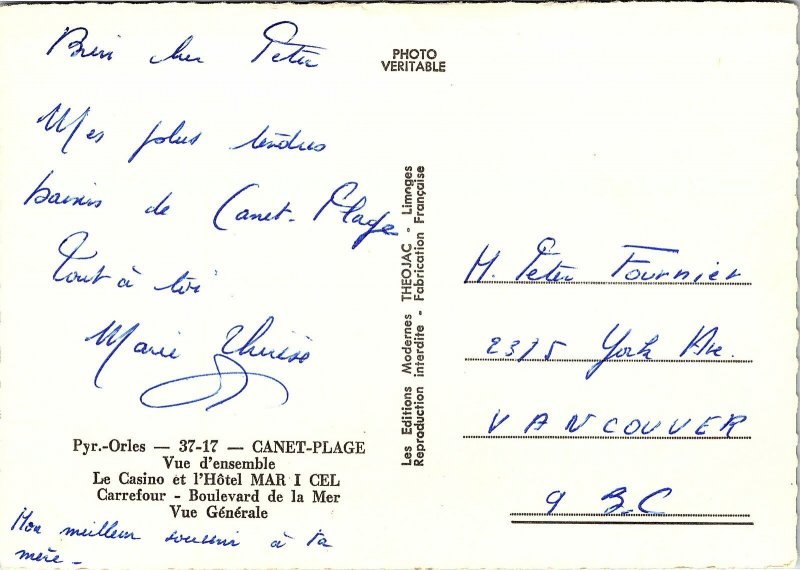 Bien cher Peter
Mes plus tendres
baisers de Canet-Plage
Tout à toi
Marie Thérèse
Pyr.-Orles — 37-17 — CANET-PLAGE
Vue d'ensemble
Le Casino et l'Hôtel MAR I CEL
Carrefour - Boulevard de la Mer
Vue Générale
Mon meilleur souvenir à ta
mère -
PHOTO
VERITABLE
Les Editions Modernes THEOJAC - Limoges
Reproduction interdite - Fabrication Française
M. Peter Fournier
2375 York Ave.
VANCOUVER
9 B.C